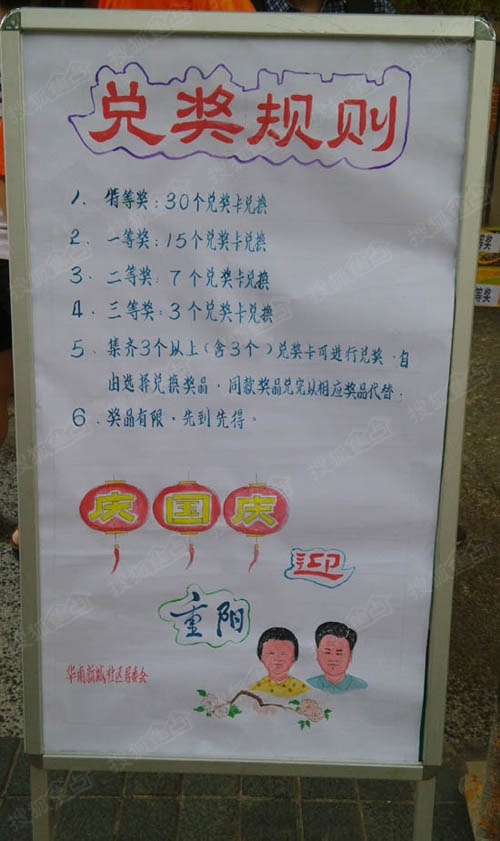 兑奖规则
1、特等奖：30个兑奖卡兑换
2、一等奖：15个兑奖卡兑换
3、二等奖：7个兑奖卡兑换
4、三等奖：3个兑奖卡兑换
5、集齐3个以上（含3个）兑奖卡可进行兑奖，自
由选择兑换奖品，同款奖品兑完以相应奖品代替．
6、奖品有限，先到先得。
庆国庆
迎
重阳
华南新城社区居委会